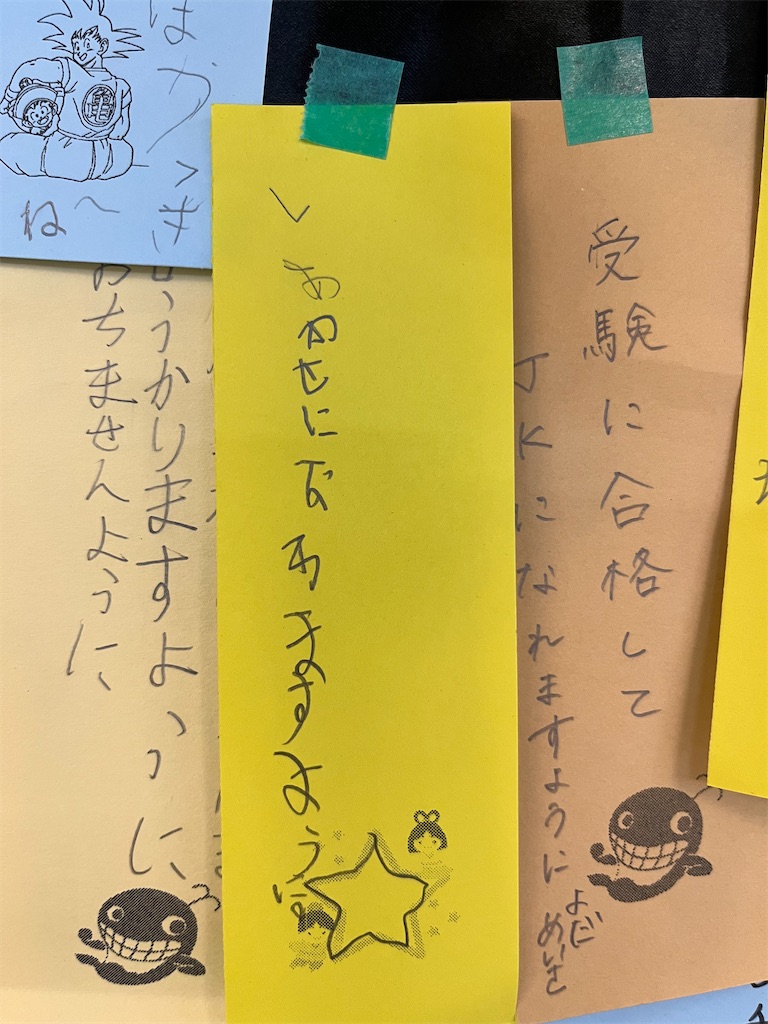 受験に合格して
JKになれますように
よだ
めいさ
しあわせになれますように
うかりますように
おちませんように
亀